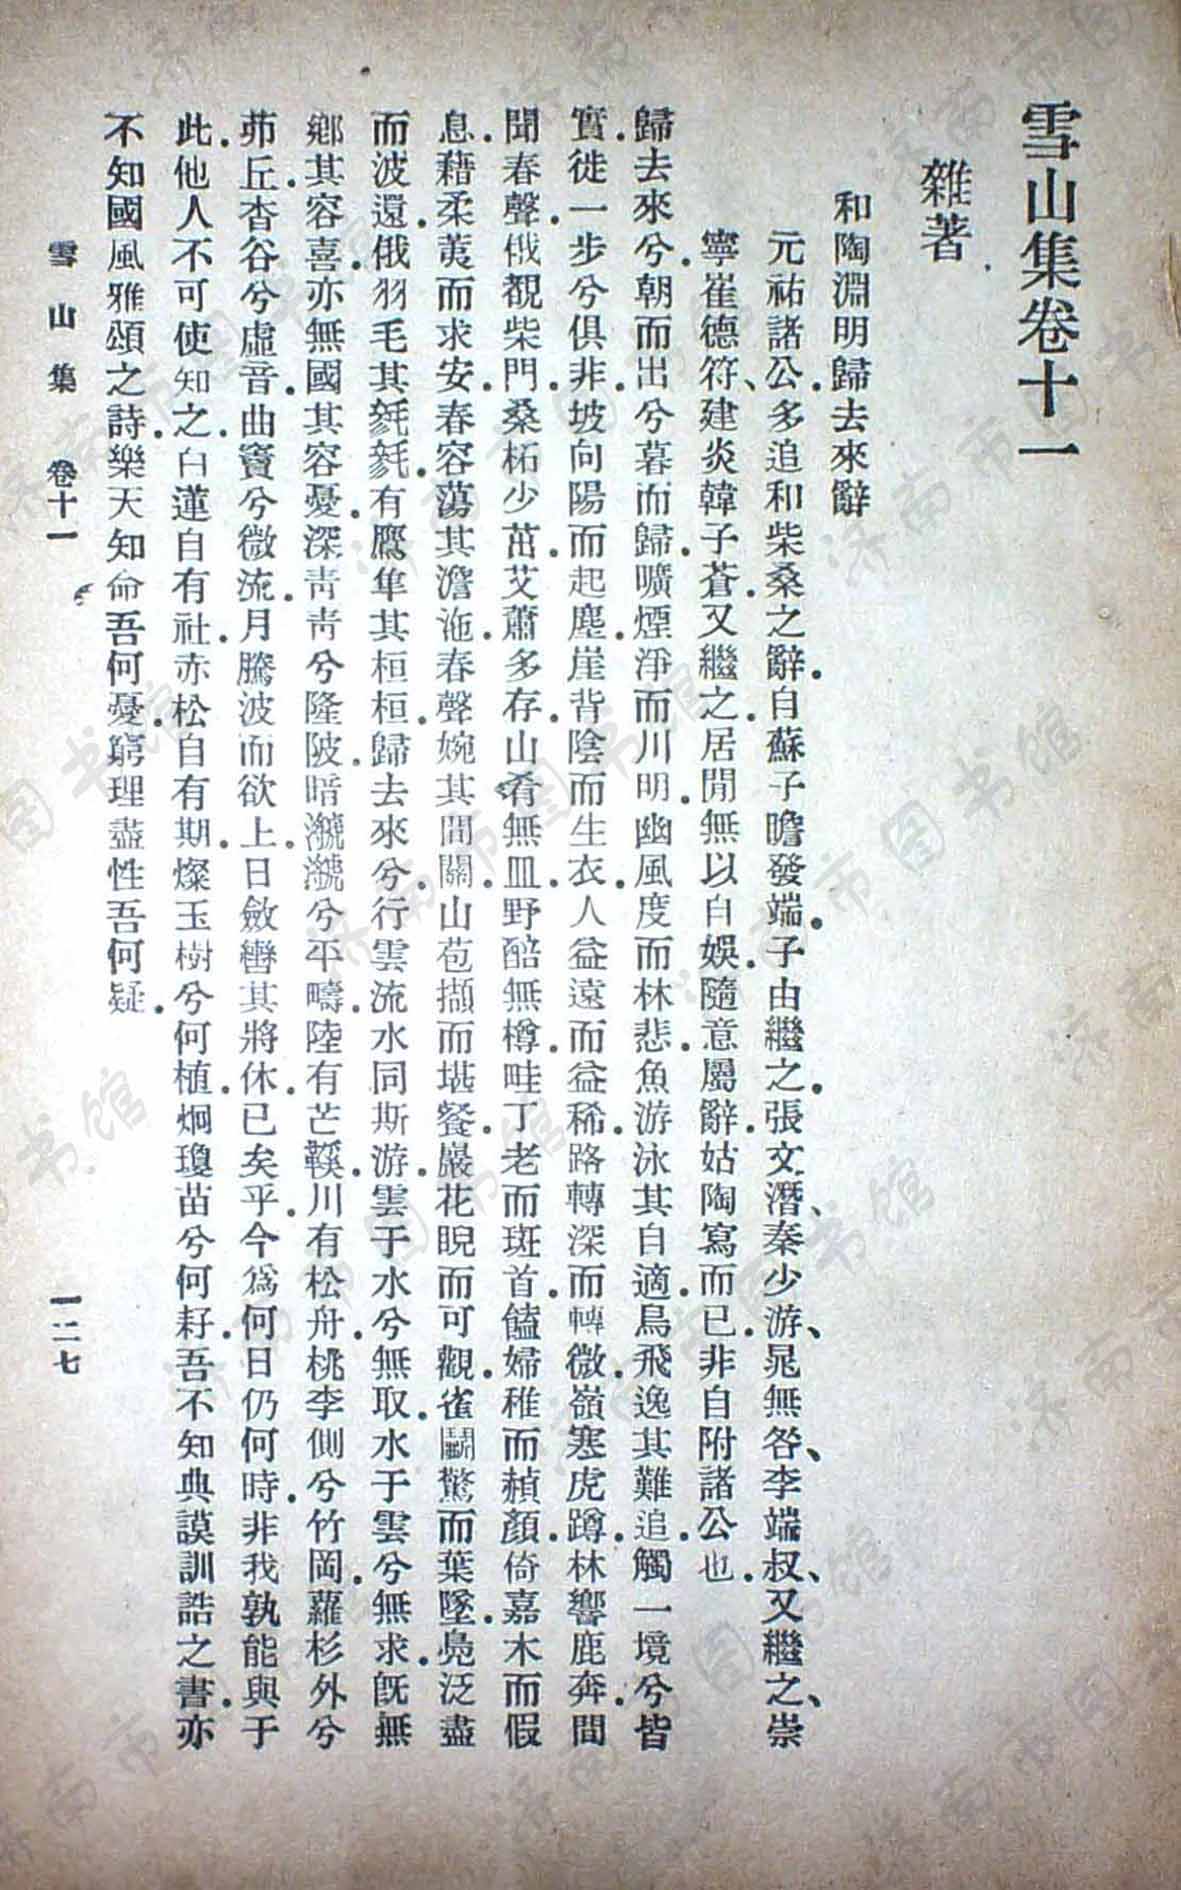 雪山集卷十一
雜著
和陶淵明歸去來辭
元祐諸公多追和柴桑之辭。自蘇子瞻發端。子由繼之。張文潛、秦少游、晁無咎、李端叔、又繼之、崇
寧崔德符、建炎韓子蒼。又繼之。居閒無以自娛。隨意屬辭。姑陶寫而已。非自附諸公也。
歸去來兮。朝而出兮暮而歸。曠煙淨而川明。幽風度而林悲。魚游泳其自適。鳥飛逸其難追。觸一境兮皆
實。徙一步兮俱非。坡向陽而起塵。崖背陰而生衣。人益遠而益稀。路轉深而轉微。嶺寒虎蹲。林響鹿奔。間
聞春聲。俄覩柴門。桑柘少茁。艾蕭多存。山肴無皿。野醅無樽。畦丁老而斑首。饁婦稚而赬顏。倚嘉木而假
息。藉柔荑而求安。春容蕩其澹沲。春聲婉其間關。山苞擷而堪餐。巖花睨而可觀。雀鬭驚而葉墜。鳧泛盡
而波還。俄羽毛其毿毿。有鷹隼其桓桓。歸去來兮。行雲流水同斯游。雲于水兮無取。水于雲兮無求。旣無
鄉其容喜。亦無國其容憂。深靑靑兮隆陂。暗瀌瀌兮平疇。陸有芒鞵。川有松舟。桃李側兮竹岡。蘿杉外兮
茆丘。杳谷兮虛音。曲竇兮微流。月騰波而欲上。日斂轡其將休。已矣乎。今爲何日仍何時。非我孰能與于
此。他人不可使知之。白蓮自有社。赤松自有期。燦玉樹兮何植。炯瓊苗兮何耔。吾不知典謨訓誥之書。亦
不知國風雅頌之詩。樂天知命吾何憂。窮理盡性吾何疑。
雪山集 卷十一 一二七